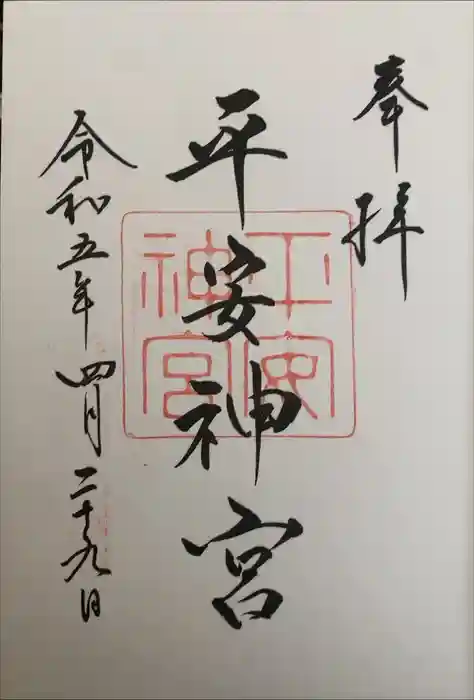 奉拝
平安神宮
平安神宮
令和五年四月二十九日